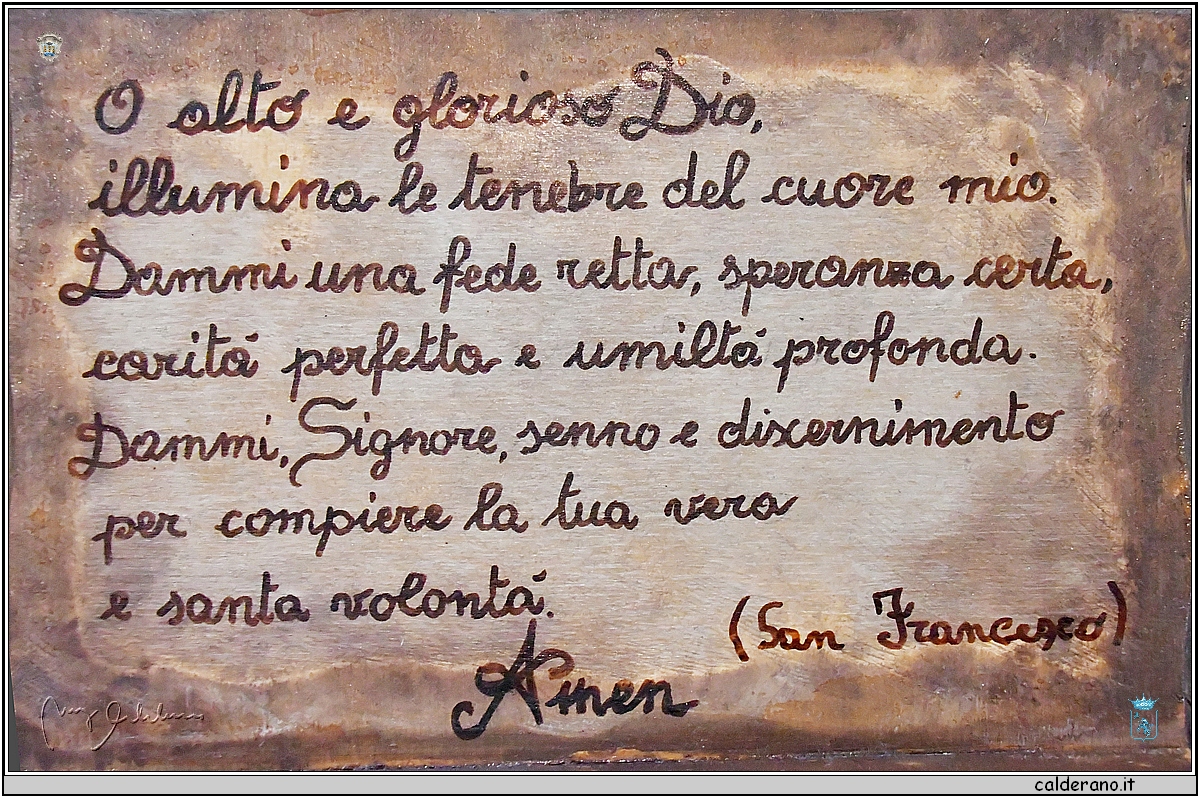 O alto e glorioso Dio,
illumina le tenebre del cuore mio.
Dammi una fede retta, speranza certa,
carità perfetta e umiltà profonda.
Dammi, Signore, senno e discernimento
per compiere la tua vera
e santa volontà.
(San Francesco)
Amen
calderano.it